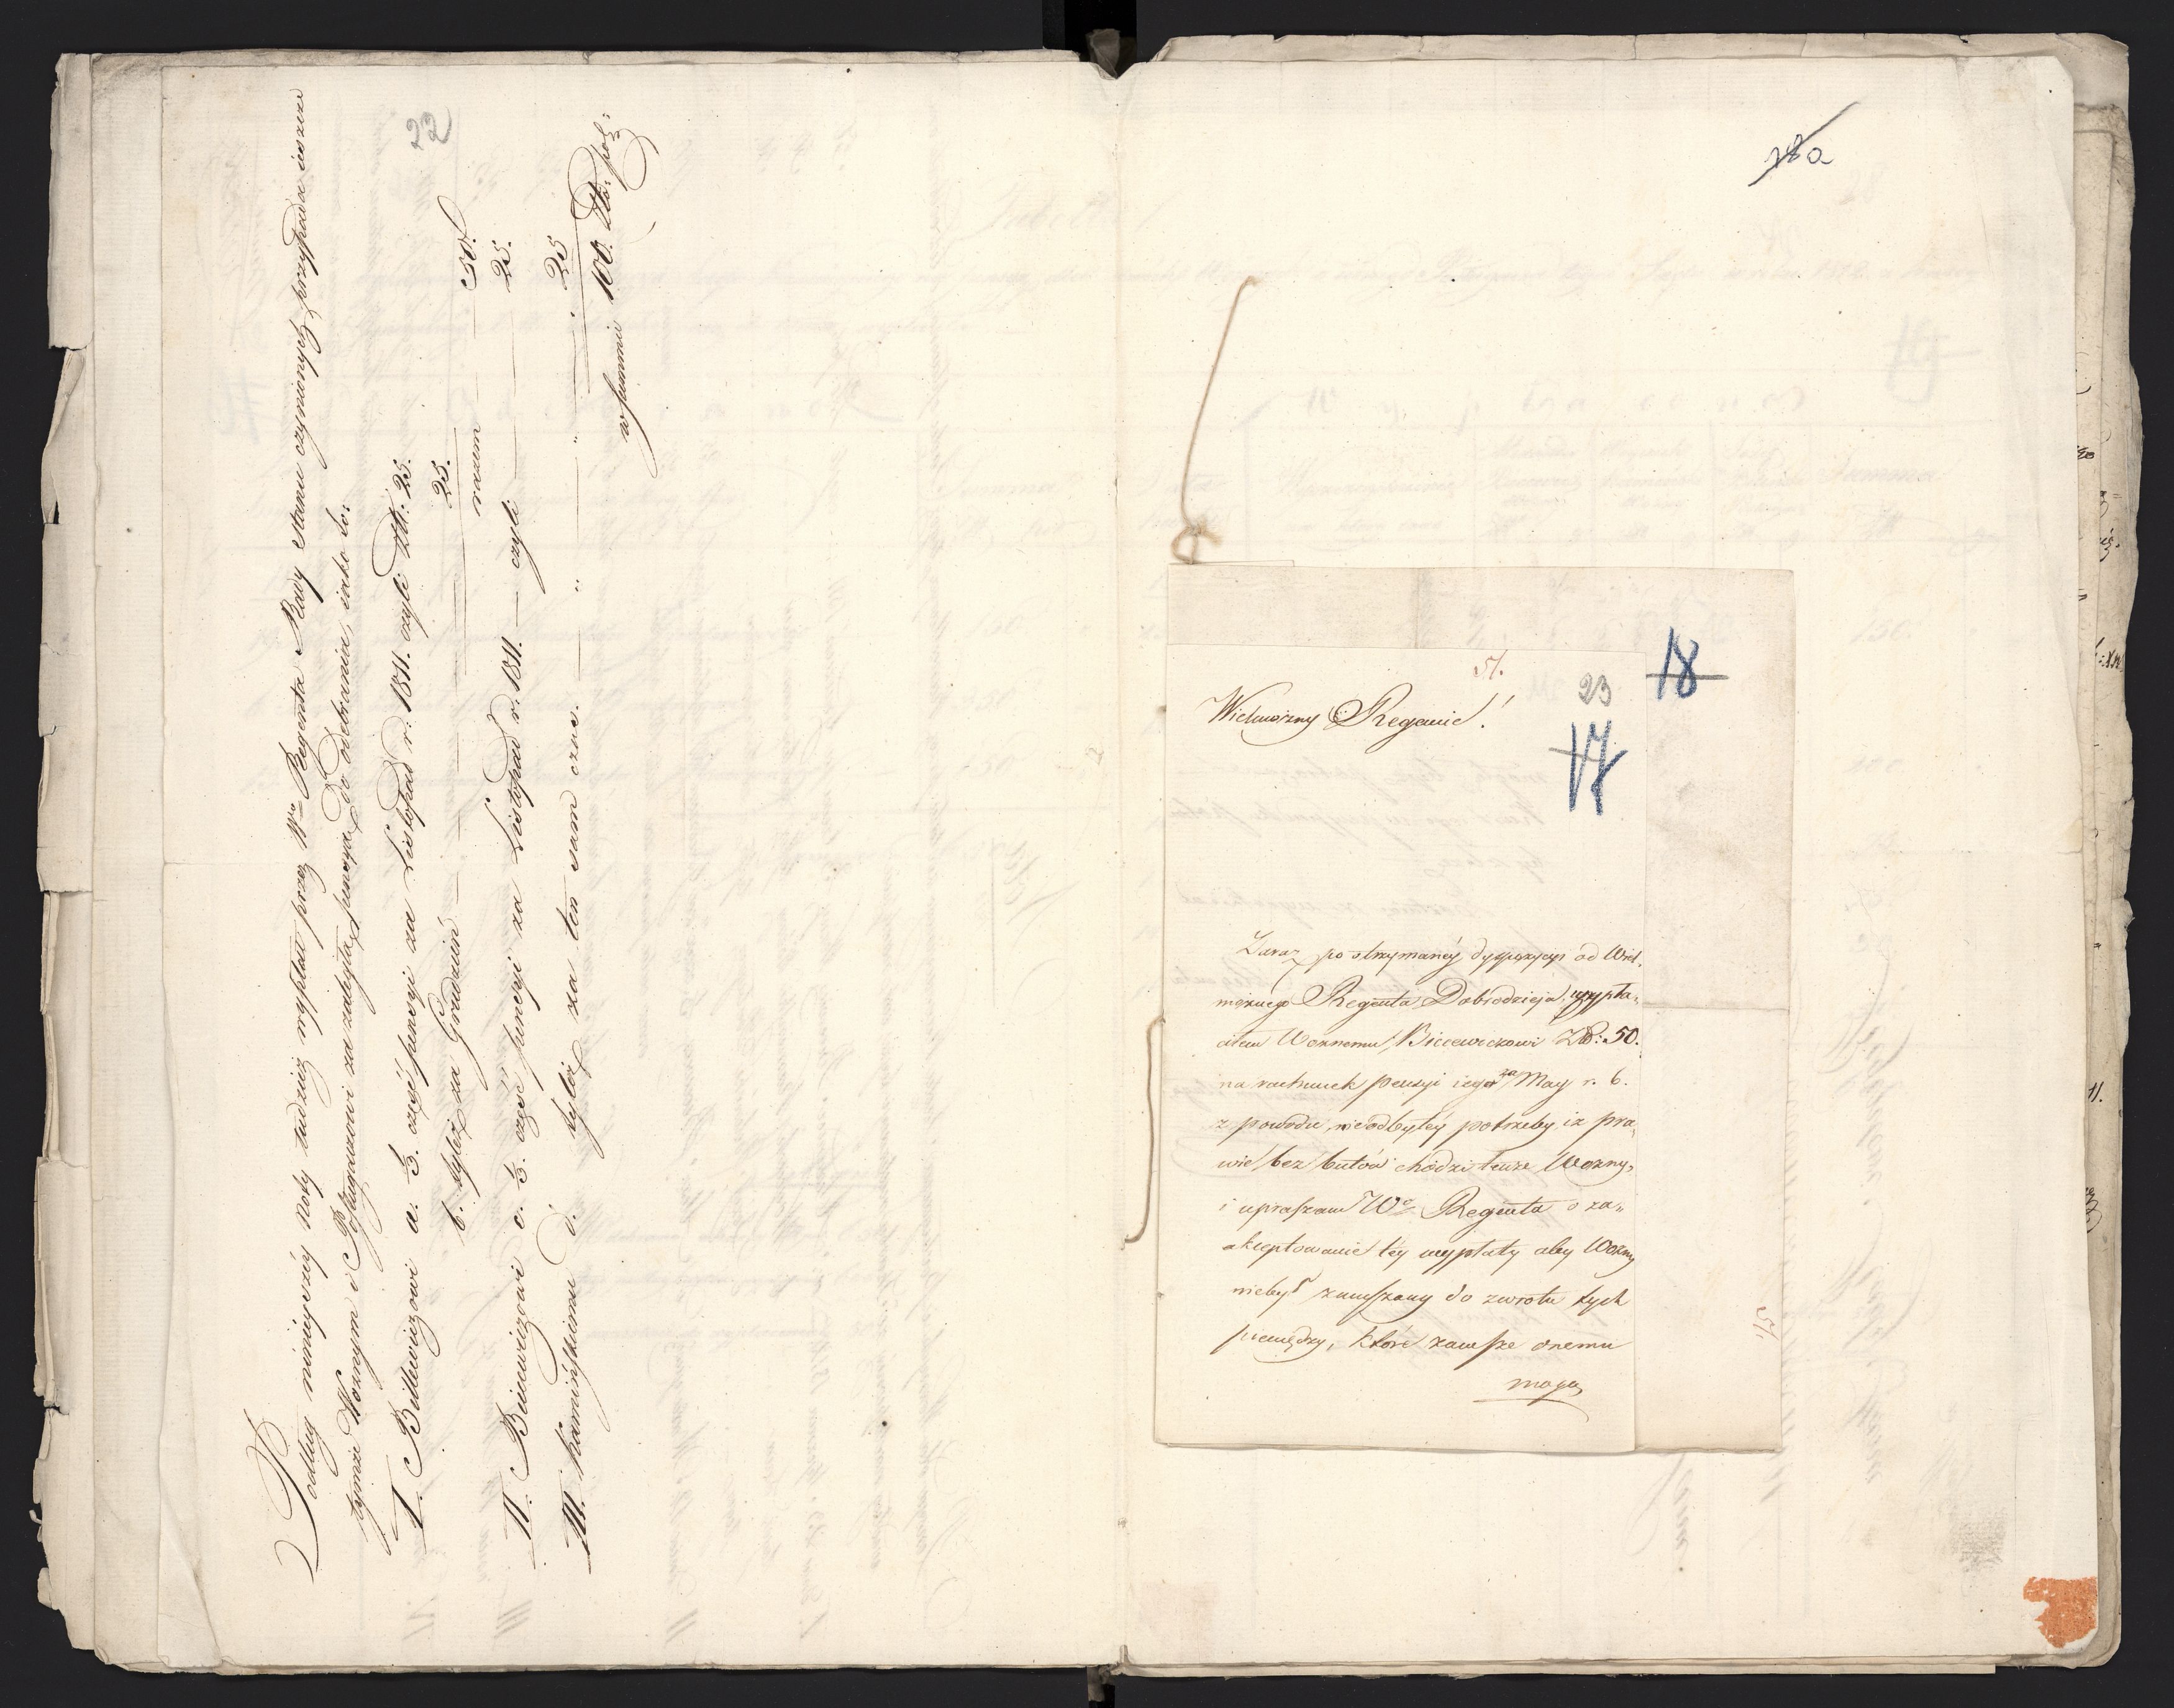 22
Podług ninieyszéy noty tudzież wypłat przez Wgo Regenta Rady stanu czynionych, przypada ieszcze
tymże Woznym i Posługaczowi za zaległą pensyą do odebrania, iako to:
I. Billewiczowi a. 1/3. część pensyi za Listopad r: 1811. czyli Złt: 25.
b. tyleż za Grudzień 25.
razem 50.
II. Biccewiczowi c. 1/3. część pensyi za Listopad r. 1811. — czyli 25.
III. Kamińskiemu d. tyleż za ten sam czas. — " — " — 25
w summie 100. Złt: pol:
a
51.
23
18
17
Wielmożny Regencie!
Zaraz po otrzymanéy dyspozycyi od Wiel„
możnego Regenta Dobrodzieja, wypła„
ciłem Woznemu Biccewiczowi Złt: 50.
na rachunek pensyi iego za May r. b.
z powodu nieodbytéy potrzeby iż pra„
wie bez butów chodzi tenże Wozny,
i upraszam Wo Regenta o za„
akceptowanie téy wypłaty aby Wozny
niebył zmuszany do zwrotu tych
pieniędzy, które zawsze onemu
mogą
51.